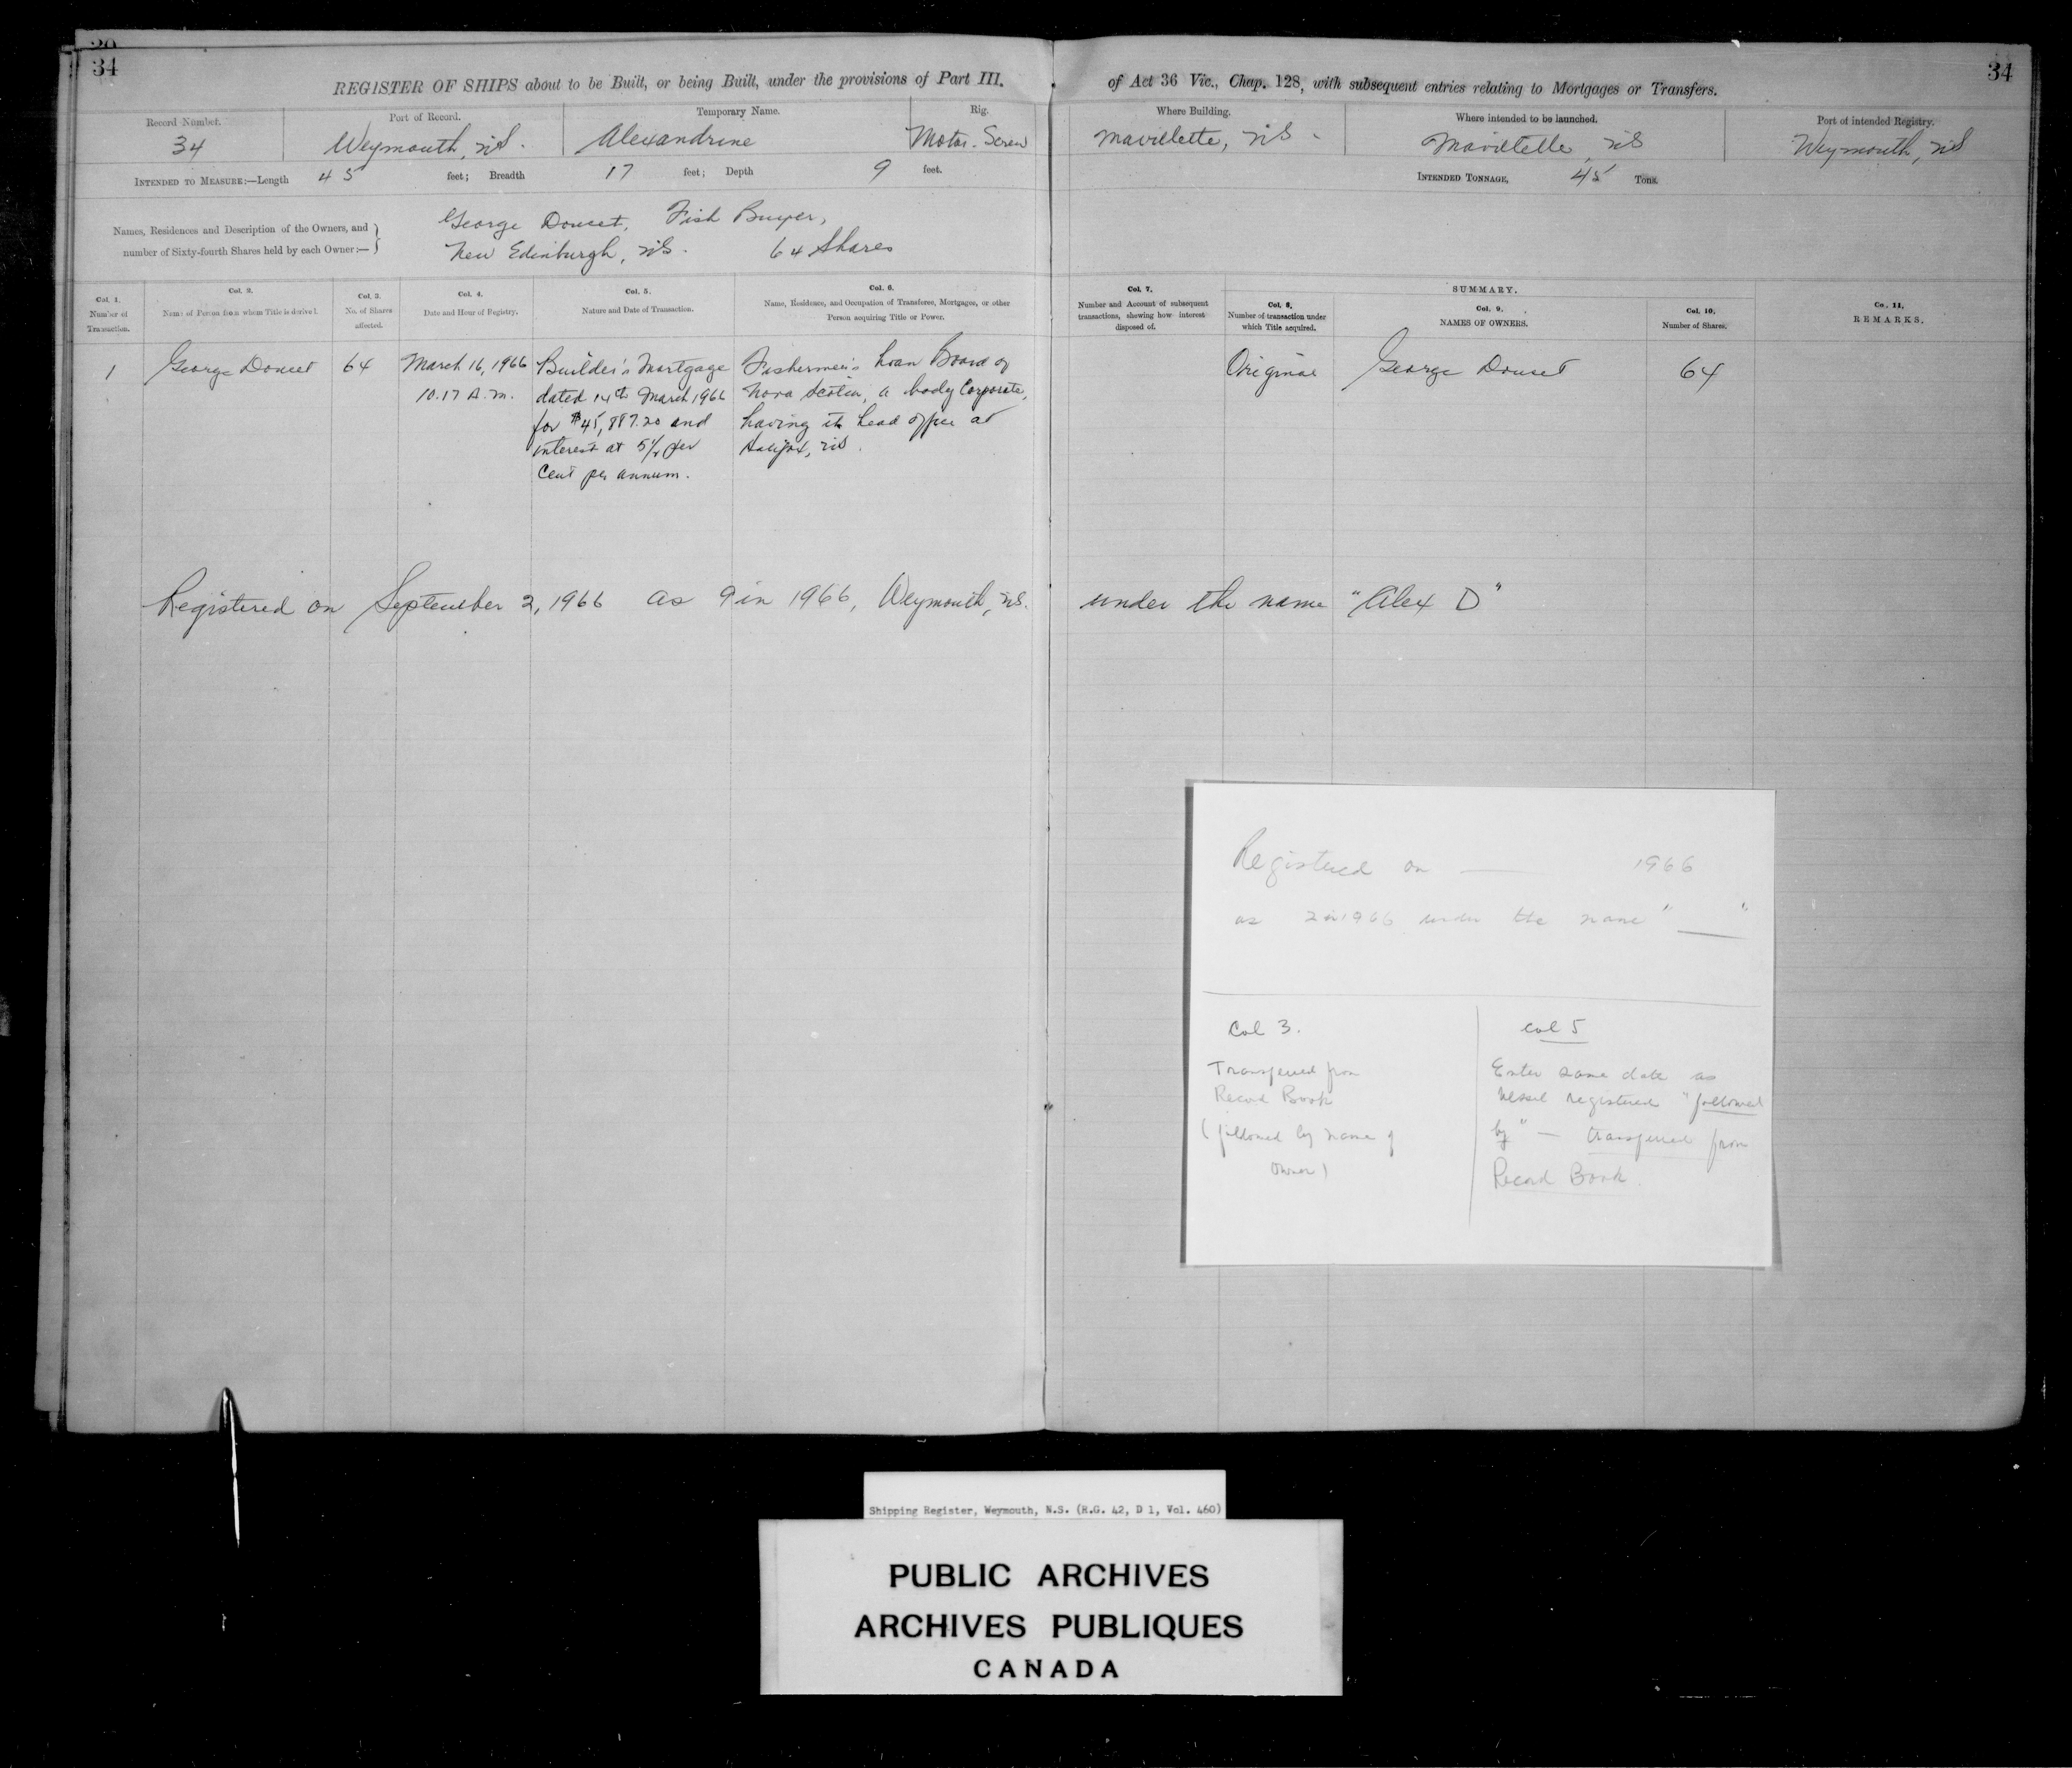 34
REGISTER OF SHIPS about to be Built, or being Built, under the provisions of Part III. of Act 36 Vic., Chap. 128, with subsequent entries relating to Mortgages or Transfers.
34
Record Number.
34
Port of Record.
Weymouth, NS.
Temporary Name.
Alexandrine
Rig.
Motor-Screw
Where Building.
Mavillette, NS.
Where intended to be launched.
Mavillette, NS
Port of intended Registry.
Weymouth, NS
INTENDED TO MEASURE:—Length 45 feet; Breadth 17 feet; Depth 9 feet.
INTENDED TONNAGE, 45 Tons.
Names, Residences and Description of the Owners, and
number of Sixty-fourth Shares held by each Owner:—
George Doucet, Fish Buyer,
New Edinburgh, NS. 64 Shares
Col. 1.
Number of
Transaction.
Col. 2.
Name of Person from whom Title is derived.
Col. 3.
No. of Shares
affected.
Col. 4.
Date and Hour of Registry.
Col. 5.
Nature and Date of Transaction.
Col. 6.
Name, Residence, and Occupation of Transferee, Mortgagee, or other
Person acquiring Title or Power.
Col. 7.
Number and Account of subsequent
transactions, shewing how interest
disposed of.
SUMMARY.
Col. 8.
Number of transaction under
which Title acquired.
Col. 9.
NAMES OF OWNERS.
Col. 10.
Number of Shares.
Co. 11.
REMARKS.
1
George Doucet
64
March 16, 1966
10.17 A.M.
Builder's Mortgage
dated 14th March 1966
for $45,887.20 and
interest at 5 per
Cent per annum.
Fishermen's Loan Board of
Nova Scotia, a body Corporate,
having its head office at
Halifax, NS.
Original
George Doucet
64
Registered on September 2, 1966 as 9 in 1966, Weymouth, NS. under the name "Alex D"
Registered on — 1966
as 2 in 1966 under the name " "
Col 3.
Transferred from
Record Book
(followed by name of
owner)
Col 5
Enter same date as
vessel registered "followed
by" — transferred from
Record Book.
Shipping Register, Weymouth, N.S. (R.G. 42, D 1, Vol. 460)
PUBLIC ARCHIVES
ARCHIVES PUBLIQUES
CANADA